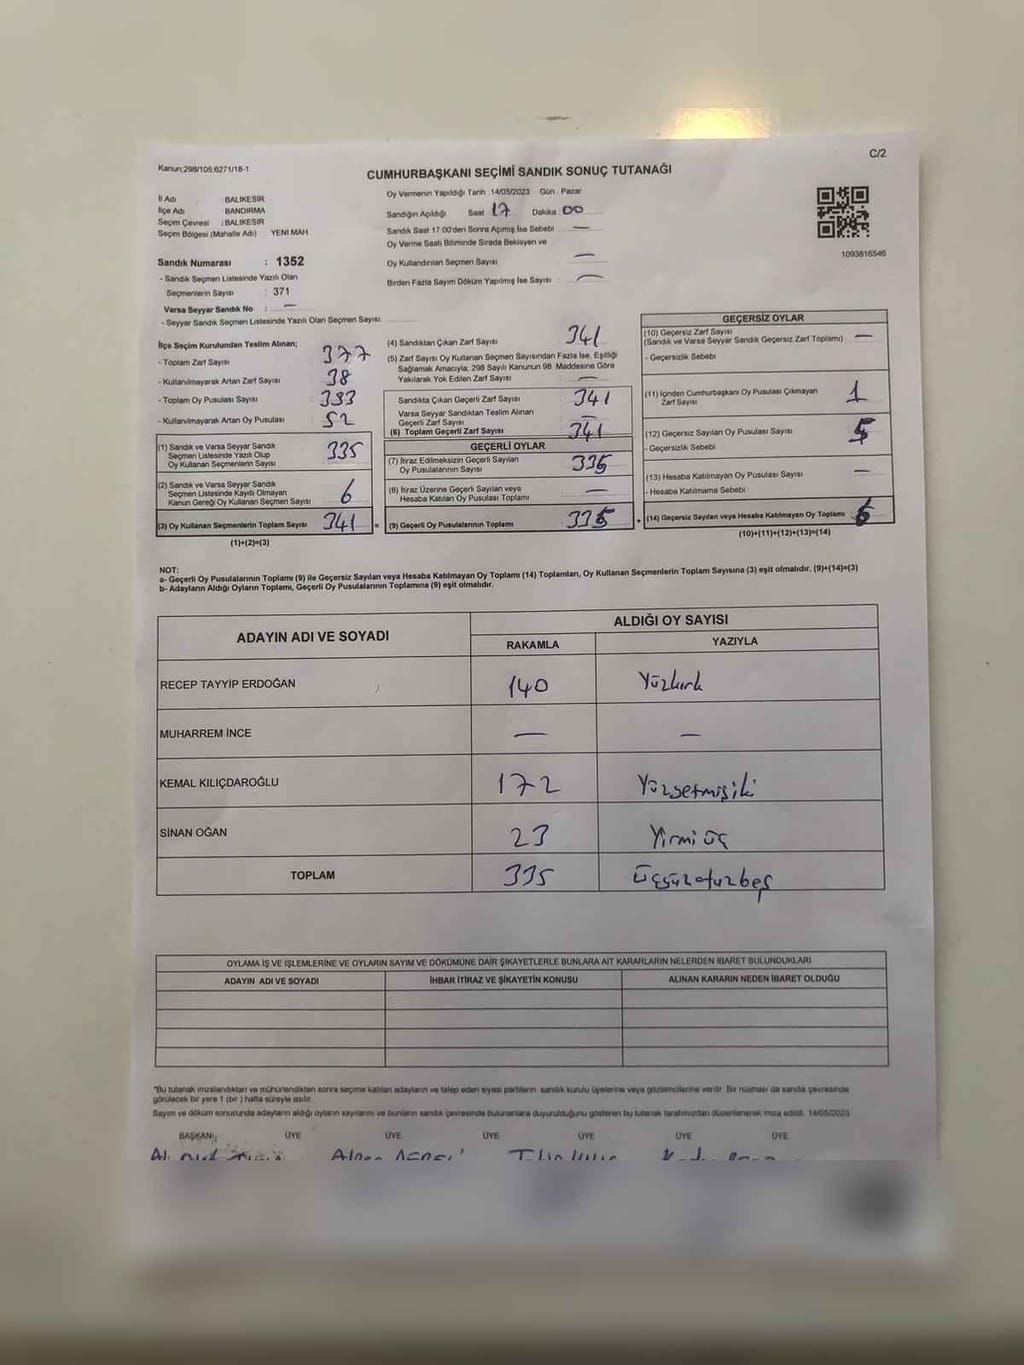 Kanun;298/105;6271/18-1
C/2
CUMHURBAŞKANI SEÇİMİ SANDIK SONUÇ TUTANAĞI
İl Adı BALIKESİR
İlçe Adı BANDIRMA
Seçim Çevresi : BALIKESİR
Seçim Bölgesi (Mahalle Adı) YENİ MAH
Sandık Numarası : 1352
- Sandık Seçmen Listesinde Yazılı Olan
Seçmenlerin Sayısı : 371
Varsa Seyyar Sandık No : —
- Seyyar Sandık Seçmen Listesinde Yazılı Olan Seçmen Sayısı
Oy Vermenin Yapıldığı Tarih 14/05/2023 Gün Pazar
Sandığın Açıldığı Saat 17 Dakika 00
Sandık Saat 17:00'den Sonra Açımış İse Sebebi —
Oy Verme Saati Bitiminde Sırada Bekleyen ve
Oy Kullandırılan Seçmen Sayısı —
Birden Fazla Sayım Döküm Yapılmış İse Sayısı : —
1093616546
İlçe Seçim Kurulundan Teslim Alınan;
- Toplam Zarf Sayısı 377
- Kullanılmayarak Artan Zarf Sayısı 38
- Toplam Oy Pusulası Sayısı
- Kullanılmayarak Artan Oy Pusulası 52
(1) Sandık ve Varsa Seyyar Sandık
Seçmen Listesinde Yazılı Olup
Oy Kullanan Seçmenlerin Sayısı 335
(2) Sandık ve Varsa Seyyar Sandık
Seçmen Listesinde Kayıtlı Olmayan
Kanun Gereği Oy Kullanan Seçmen Sayısı 6
(3) Oy Kullanan Seçmenlerin Toplam Sayısı 341 =
(1)+(2)=(3)
(4) Sandıktan Çıkan Zarf Sayısı 341
(5) Zarf Sayısı Oy Kullanan Seçmen Sayısından Fazla İse, Eşitliği
Sağlamak Amacıyla, 298 Sayılı Kanunun 98. Maddesine Göre
Yakılarak Yok Edilen Zarf Sayısı —
Sandıkta Çıkan Geçerli Zarf Sayısı 341
Varsa Seyyar Sandıktan Teslim Alınan
Geçerli Zarf Sayısı —
(6) Toplam Geçerli Zarf Sayısı 341
GEÇERLİ OYLAR
(7) İtiraz Edilmeksizin Geçerli Sayılan
Oy Pusulalarının Sayısı 335
(8) İtiraz Üzerine Geçerli Sayılan veya
Hesaba Katılan Oy Pusulası Toplamı —
(9) Geçerli Oy Pusulalarının Toplamı 335 +
GEÇERSİZ OYLAR
(10) Geçersiz Zarf Sayısı
(Sandık ve Varsa Seyyar Sandık Geçersiz Zarf Toplamı) —
- Geçersizlik Sebebi
(11) İçinden Cumhurbaşkanı Oy Pusulası Çıkmayan
Zarf Sayısı 1
(12) Geçersiz Sayılan Oy Pusulası Sayısı 5
- Geçersizlik Sebebi
(13) Hesaba Katılmayan Oy Pusulası Sayısı —
- Hesaba Katılmama Sebebi
(14) Geçersiz Sayılan veya Hesaba Katılmayan Oy Toplamı 6
(10)+(11)+(12)+(13)=(14)
NOT:
a- Geçerli Oy Pusulalarının Toplamı (9) ile Geçersiz Sayılan veya Hesaba Katılmayan Oy Toplamı (14) Toplamları, Oy Kullanan Seçmenlerin Toplam Sayısına (3) eşit olmalıdır. (9)+(14)=(3)
b- Adayların Aldığı Oyların Toplamı, Geçerli Oy Pusulalarının Toplamına (9) eşit olmalıdır.
ADAYIN ADI VE SOYADI
ALDIĞI OY SAYISI
RAKAMLA YAZIYLA
RECEP TAYYİP ERDOĞAN 140 Yüzkırk
MUHARREM İNCE — —
KEMAL KILIÇDAROĞLU 172 Yüzyetmişiki
SİNAN OĞAN 23 Yirmi üç
TOPLAM 335 üçyüzotuzbeş
OYLAMA İŞ VE İŞLEMLERİNE VE OYLARIN SAYIM VE DÖKÜMÜNE DAİR ŞİKAYETLERLE BUNLARA AİT KARARLARIN NELERDEN İBARET BULUNDUKLARI
ADAYIN ADI VE SOYADI İHBAR İTİRAZ VE ŞİKAYETİN KONUSU ALINAN KARARIN NEDEN İBARET OLDUĞU
"Bu tutanak imzalandıktan ve mühürlendikten sonra seçime katılan adayların ve talep eden siyasi partilerin sandık kurulu üyelerine veya gözlemcilerine verilir. Bir nüshası da sandık çevresinde
görülecek bir yere 1 (bir ) hafta süreyle asılır.
Sayım ve döküm sonucunda adayların aldığı oyların sayılarını ve bunların sandık çevresinde bulunanlara duyurulduğunu gösteren bu tutanak tarafımızdan düzenlenerek imza edildi. 14/05/2023
BAŞKAN: ÜYE ÜYE ÜYE ÜYE ÜYE ÜYE